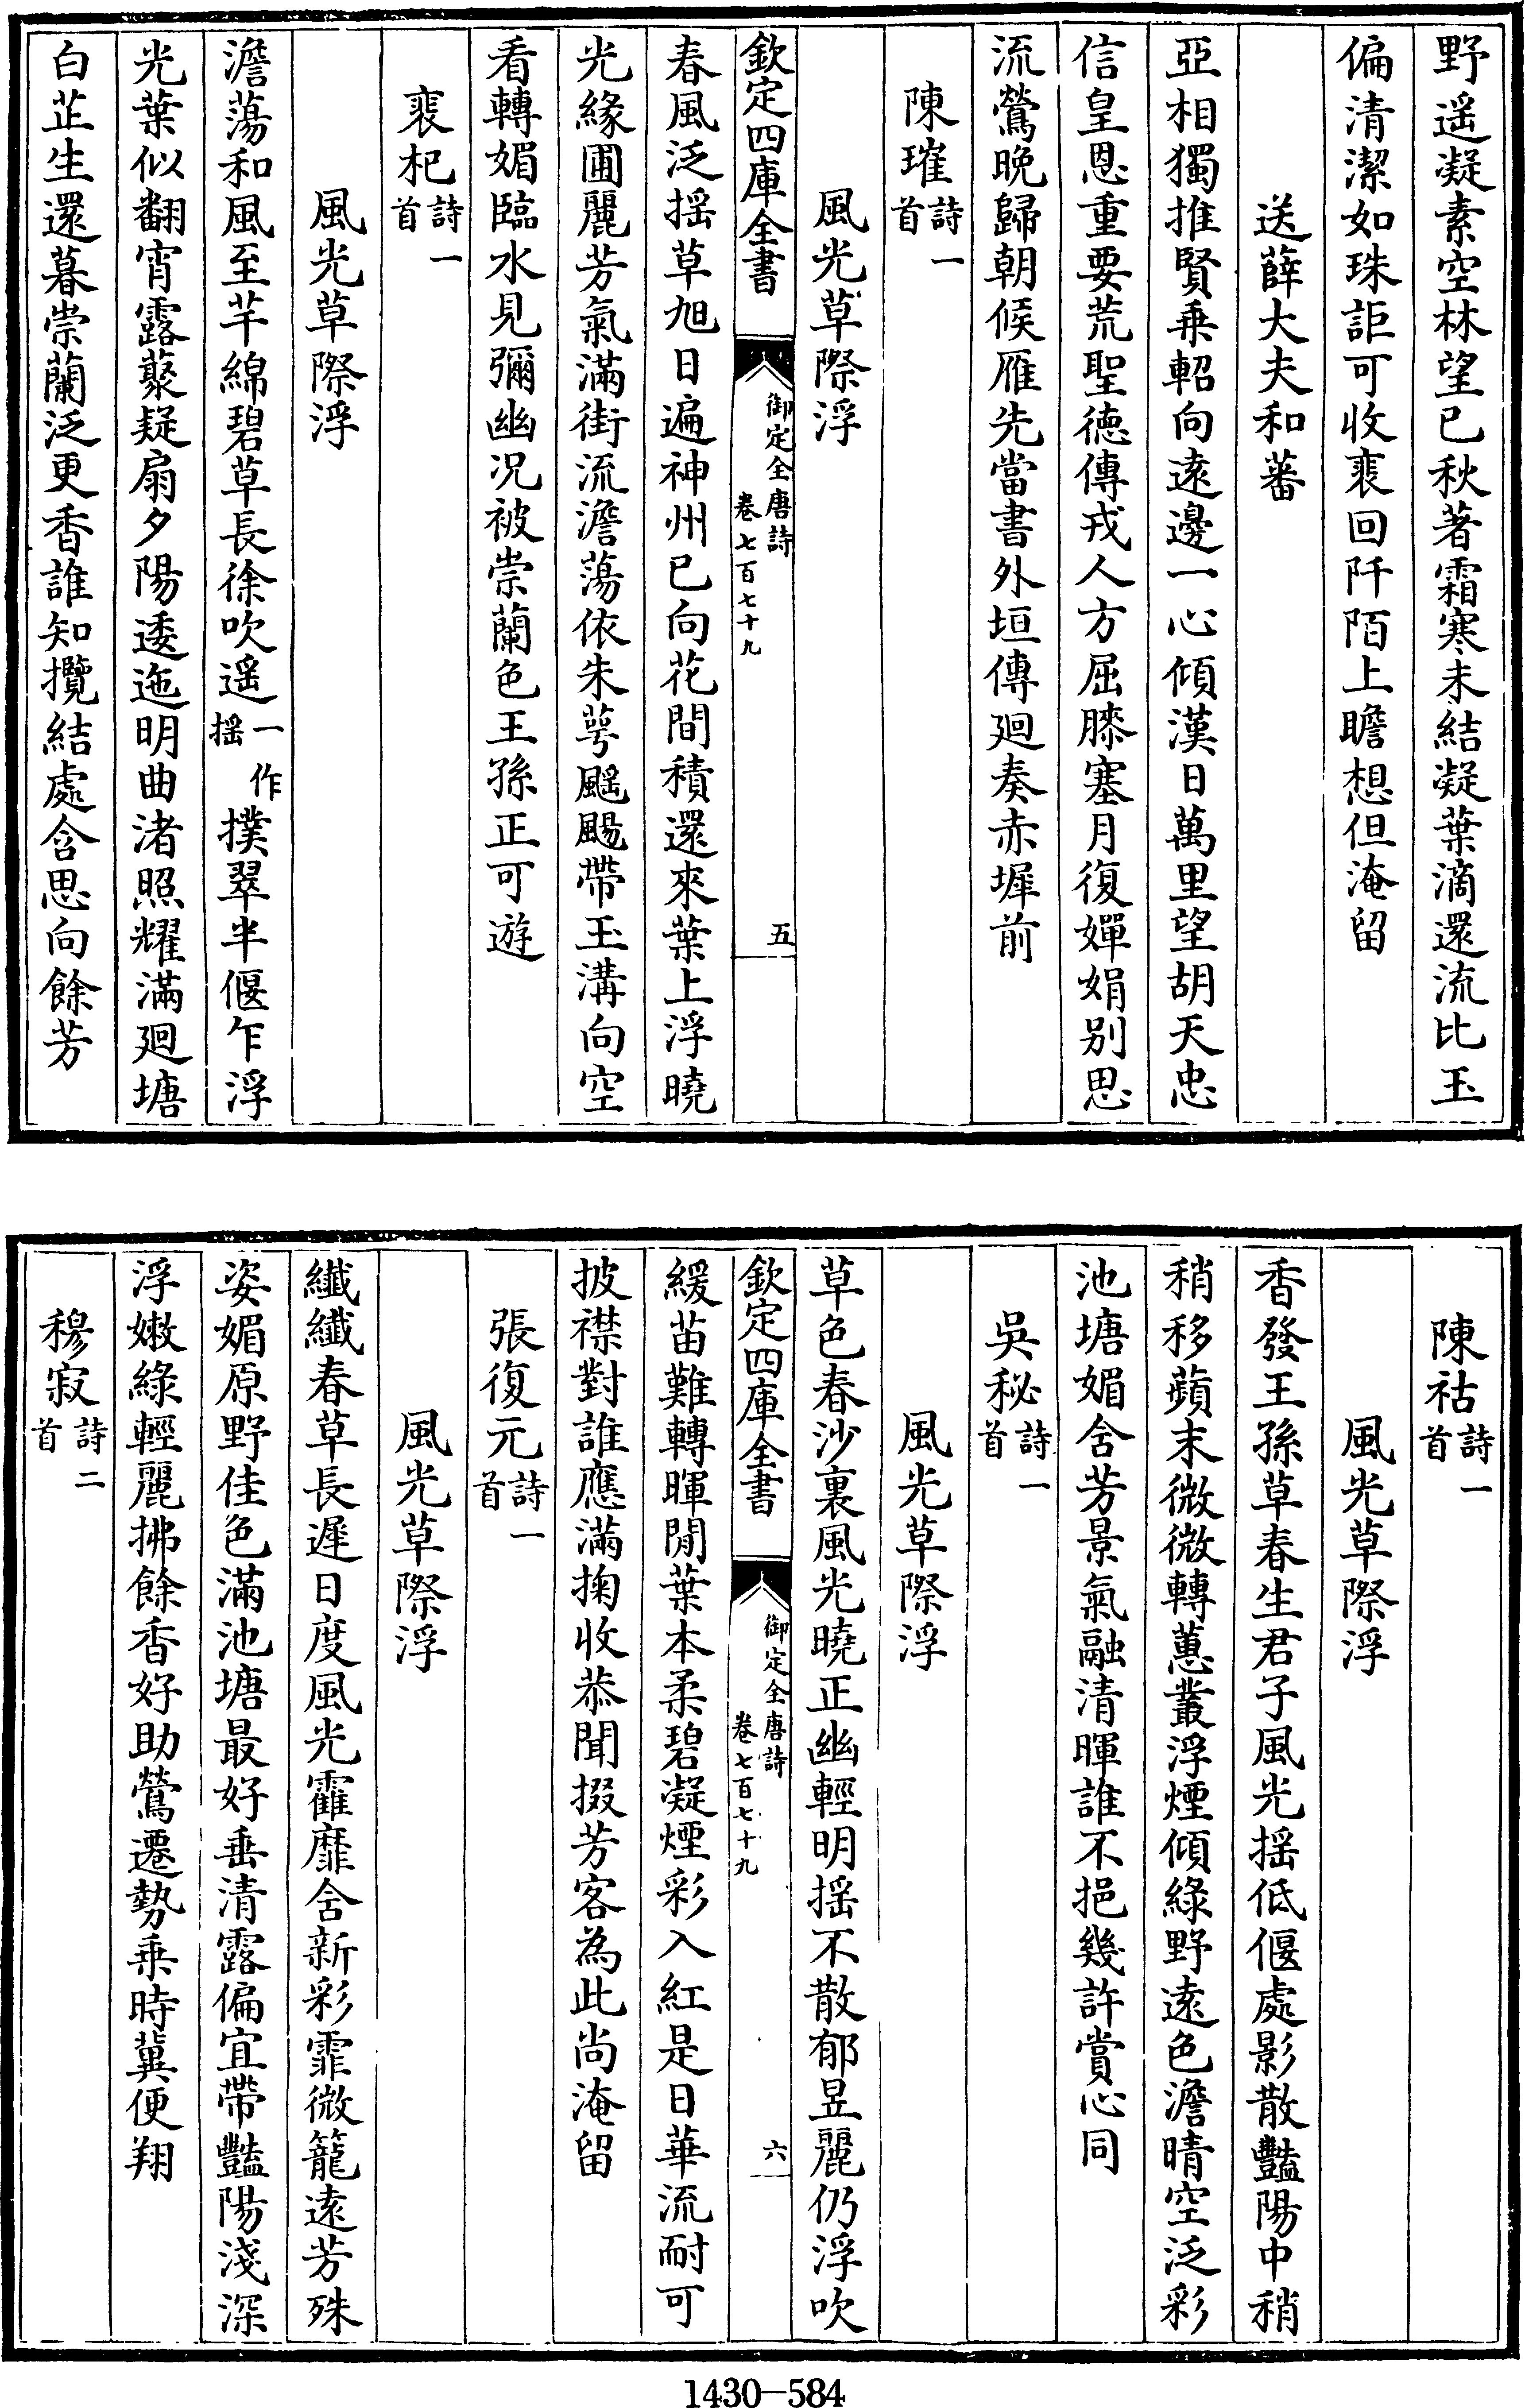 野遥凝素空林望已秋著霜寒未結凝葉滴還流比玉
偏清潔如珠詎可收裴回阡陌上瞻想但淹留
送薛大夫和蕃
亞相獨推賢乗軺向逺邊一心傾漢日萬里望胡天忠
信皇恩重要荒聖徳傳戎人方屈膝塞月復嬋娟别思
流鶯晚歸朝候雁先當書外垣傳廻奏赤墀前
陳璀詩一首
風光草際浮
欽定四庫全書
御定全唐詩
卷七百七十九
五
春風泛揺草旭日遍神州已向花間積還來葉上浮曉
光緣圃麗芳氣滿街流澹蕩依朱萼颻颺帶玉溝向空
看轉媚臨水見彌幽况被崇蘭色王孫正可遊
裴杞詩一首
風光草際浮
澹蕩和風至芊綿碧草長徐吹遥一作揺撲翠半偃乍浮
光葉似翻宵露藂疑扇夕陽逶迤明曲渚照耀滿廻塘
白芷生還暮崇蘭泛更香誰知攬結處含思向餘芳
陳祜詩一首
風光草際浮
香發王孫草春生君子風光揺低偃處影散豔陽中稍
稍移蘋末微微轉蕙叢浮煙傾綠野逺色澹晴空泛彩
池塘媚含芳景氣融清暉誰不挹幾許賞心同
吳秘詩一首
風光草際浮
草色春沙裏風光曉正幽輕明揺不散郁昱麗仍浮吹
欽定四庫全書
御定全唐詩
卷七百七十九
六
緩苗難轉暉閒葉本柔碧凝煙彩入紅是日華流耐可
披襟對誰應滿掬收恭聞掇芳客為此尚淹留
張復元詩一首
風光草際浮
纖纖春草長遲日度風光靃靡含新彩霏微籠逺芳殊
姿媚原野佳色滿池塘最好垂清露偏宜帶豔陽淺深
浮嫩綠輕麗拂餘香好助鶯遷勢乗時冀便翔
穆寂詩二首
1430—584